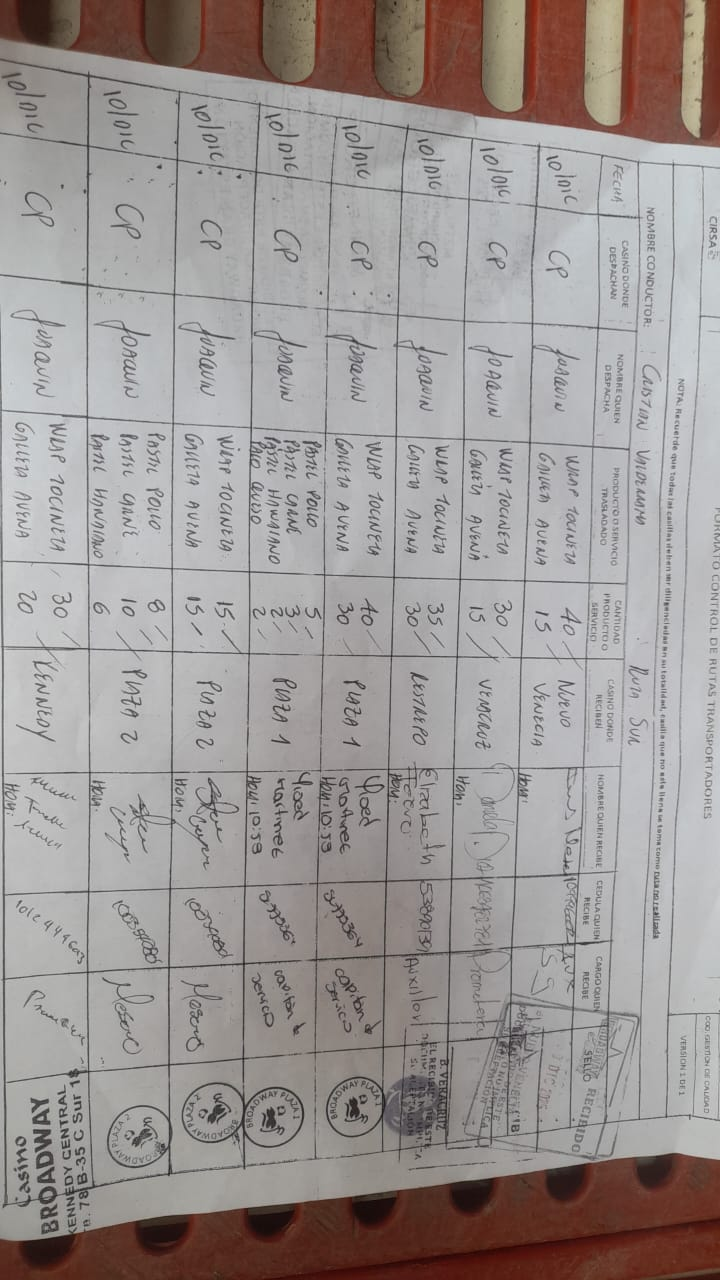 CIRSA
FORMATO CONTROL DE RUTAS TRANSPORTADORES
COD. GESTION DE CALIDAD
VERSION 1 DE 1
NOTA: Recuerde que todas las casillas deben ser diligenciadas en su totalidad, casilla que no este llena se toma como ruta no realizada
NOMBRE CONDUCTOR: CRISTIAN VALDERRAMA RUTA SUR
FECHA CASINO DONDE DESPACHAN NOMBRE QUIEN DESPACHA PRODUCTO O SERVICIO TRASLADADO CANTIDAD PRODUCTO O SERVICIO CASINO DONDE RECIBEN NOMBRE QUIEN RECIBE CEDULA QUIEN RECIBE CARGO QUIEN RECIBE SELLO RECIBIDO
10/DIC CP JOAQUIN WRAP TOCINETA 40 NUEVO
GALLETA AVENA 15 VENECIA
Hora:
10/DIC CP JOAQUIN WRAP TOCINETA 30 VERACRUZ
GALLETA AVENA 15
Hora:
10/DIC CP JOAQUIN WRAP TOCINETA 35 RESTREPO Elizabeth
GALLETA AVENA 30
Hora:
B. VERACRUZ
EL RECIBO DE ESTE
10/DIC CP JOAQUIN WRAP TOCINETA 40 PLAZA 1 Yoed Martinez Capitan de Servicio
GALLETA AVENA 30
Hora: 10:59
BROADWAY PLAZA 1
10/DIC CP JOAQUIN PASTEL POLLO 5 PLAZA 1 Yoed Martinez Capitan de Servicio
PASTEL CARNE 3
PASTEL HAWAIANO 2
PALO QUESO 2
Hora: 10:59
BROADWAY PLAZA 1
10/DIC CP JOAQUIN WRAP TOCINETA 15 PLAZA 2 Mesero
GALLETA AVENA 15
Hora:
BROADWAY PLAZA 2
10/DIC CP JOAQUIN PASTEL POLLO 8 PLAZA 2 Mesero
PASTEL CARNE 10
PASTEL HAWAIANO 6
Hora:
BROADWAY PLAZA 2
10/DIC CP JOAQUIN WRAP TOCINETA 30 KENNEDY
GALLETA AVENA 20
Hora:
Casino
BROADWAY
KENNEDY CENTRAL
78 B-35 C Sur